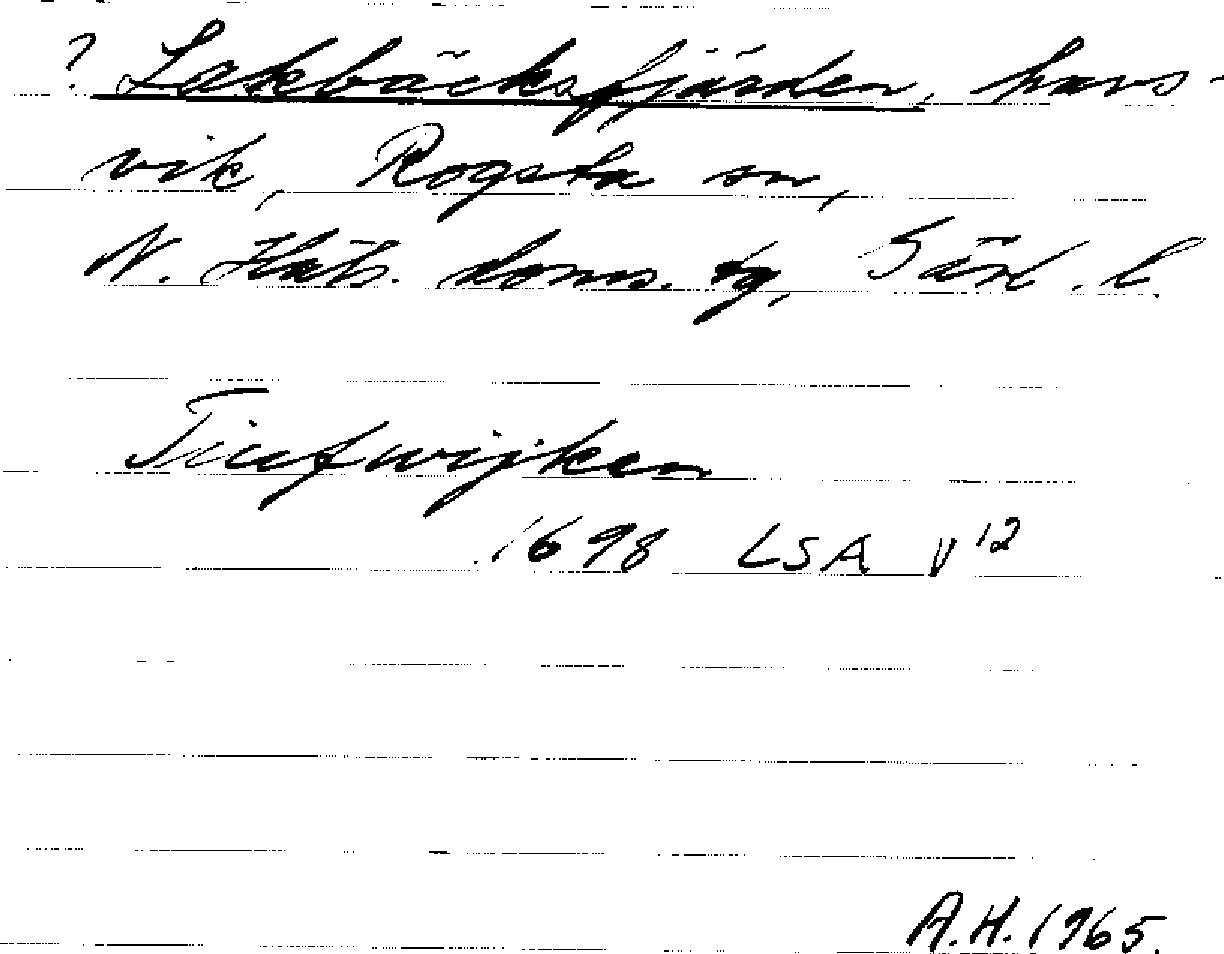 ? Lakbäcksfjärden, havs-
vik, Rogsta sn,
N. Häls. doms. tg, Gävl. l.
Tiufwijken
1698 LSA V 12
A.H. 1965.